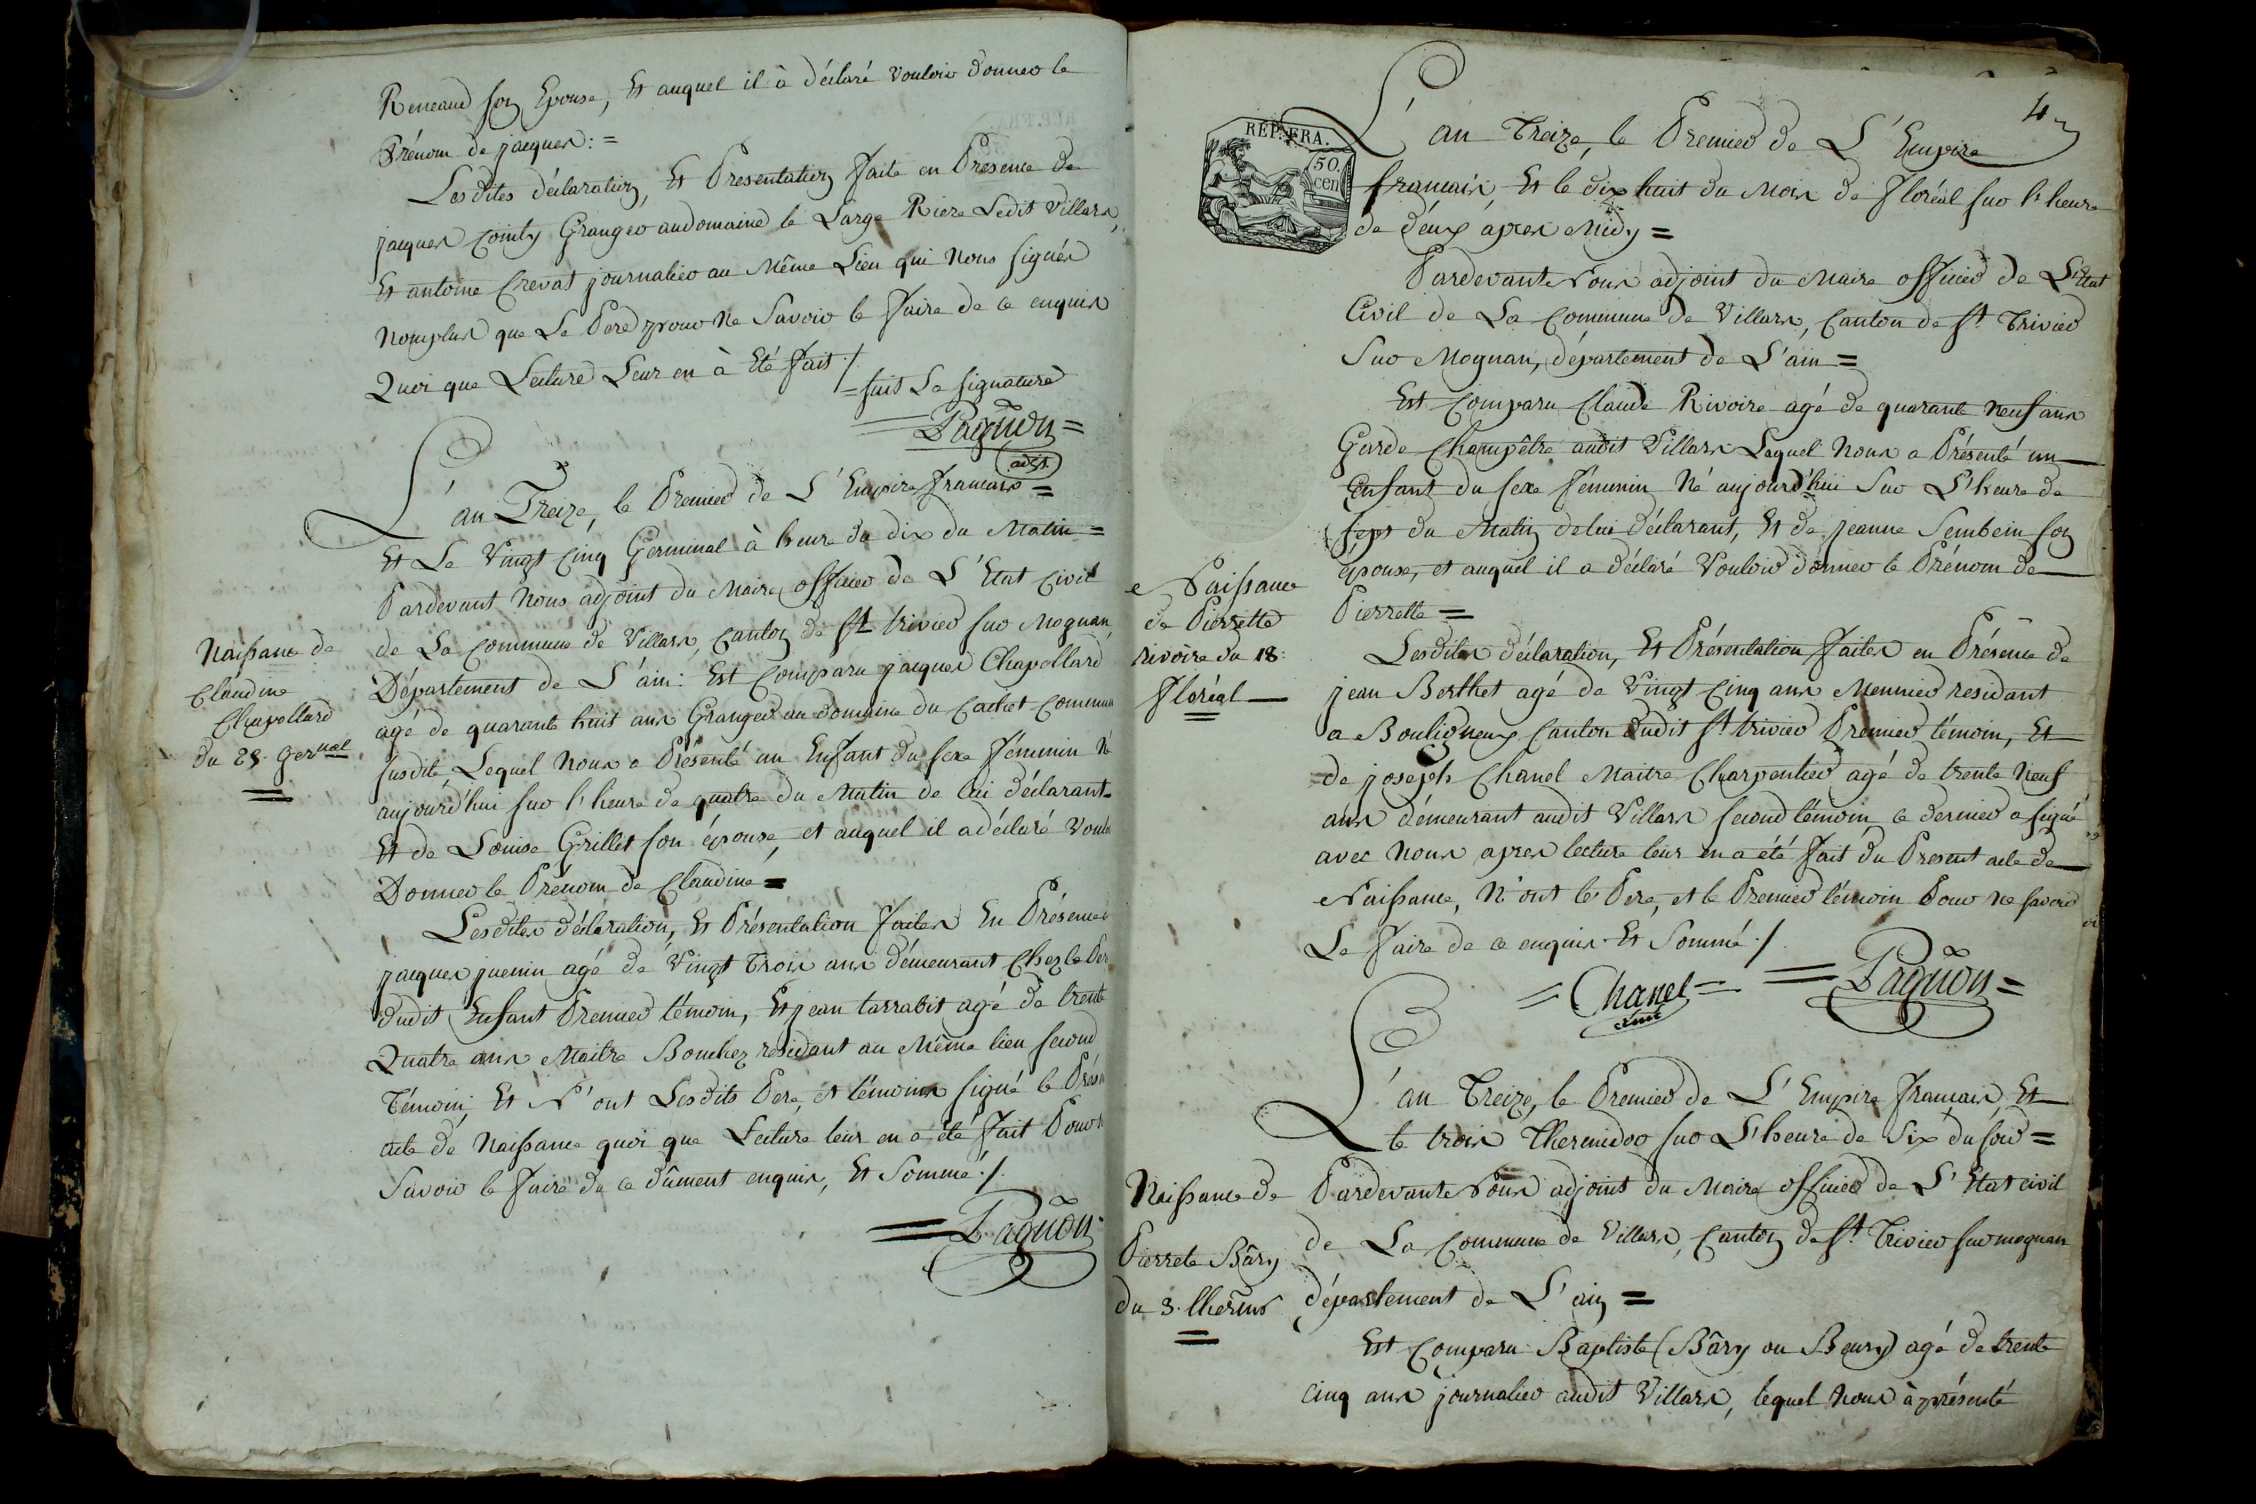 Reneaud son Epouse, Et auquel il à déclaré vouloir donner le
Prénom de jacques : =
Lesdites déclaration, Et Presentation faite en Presence de
jacques Cointy Granger audomaine le Large Riere Ledit Villars,
Et antoine Crevat journalier au Même Lieu qui Nous signés
Nomplus que Le Pere pour Ne Savoir le faire de ce enquis
Quoi que Lecture Leur en à Eté fait ./.
= suit La signature
= Pagnon =
adjt
L'an Treize, le Premier de L'Empire francais =
Et Le Vingt Cinq Germinal à heure du dix du Matin =
Pardevant Nous adjoint du Maire officier de L'Etat Civil
de La Commune de Villars, Canton de St trivier sur Mognan,
Département de L'ain : Est Comparu jacques Chapollard
agé de quarante huit ans Granger au domaine du Cachet Commune
susdite, Lequel Nous a Présenté un Enfant du sexe féminin Né
aujourd'hui sur l'heure de quatre du Matin de lui déclarant
Et de Louise Grillet son épouse, et auquel il a déclaré Vouloir
Donner le Prénom de Claudine =
Lesdites déclaration, Et Présentation faites En Présence
jacques juenin agé de Vingt Trois ans démeurant Chez le Per
dudit Enfant Premier témoin, Et jean tarrabit agé de trente
Quatre ans Maitre Boucher résidant au Même lieu second
Témoin, Et N'ont Lesdits Pere, et témoins signé le Présen
acte de Naissance quoi que Lecture leur en a été fait Pour
Savoir le faire de ce dûment enquis, Et Sommé ./.
= Pagnon
Naissance de
Claudine
Chapollard
du 25. Gernal
=
4
REP. FRA.
50.
cen
L'an Treize, le Premier de L'Empire
francais, Et le dix huit du Mois de floréal sur l'heure
de deux apres Midy =
Pardevant Nous adjoint du Maire officier de L'Etat
Civil de La Commune de Villars, Canton de St Trivier
Sur Mognan, département de L'ain =
Est Comparu Claude Rivoire agé de quarante Neuf ans
Garde Champêtre audit Villars Lequel Nous a Présenté un
Enfant du sexe féminin Né aujourd'hui Sur L'heure de
sept du Matin de lui déclarant, Et de jeanne Sembein son
épouse, et auquel il a déclaré Vouloir donner le Prénom de
Pierrette =
Lesdites déclaration, Et Présentation faites en Présence de
jean Berthet agé de Vingt Cinq ans Meunier residant
a Bouligneux Canton dudit St trivier Premier témoin, Et
de joseph Chanel Maitre Charpentier agé de trente Neuf
ans démeurant audit Villars second témoin ce dernier a signé
avec Nous apres lecture leur en a été fait du Present acte de
Naissance, N'ont le Pere, et le Premier témoin Pour Ne savoir
Le faire de ce enquis Et Sommé ./.
= Chanel =
= Pagnon =
Naissance
de Pierrette
rivoire du 18 :
floréal
=
L'an Treize, le Premier de L'Empire francais Et
le trois Thermidor sur L'heure de Six du soir =
Pardevant Nous adjoint du Maire officier de L'Etat civil
de La Commune de Villars, Canton de St Trivier sur mognan
département de L'ain =
Est Comparu Baptiste (Bâry ou Beury) agé de trente
cinq ans journalier audit Villars, lequel Nous à présenté
Naissance de
Pierrete Bâry
du 3. thermr
=